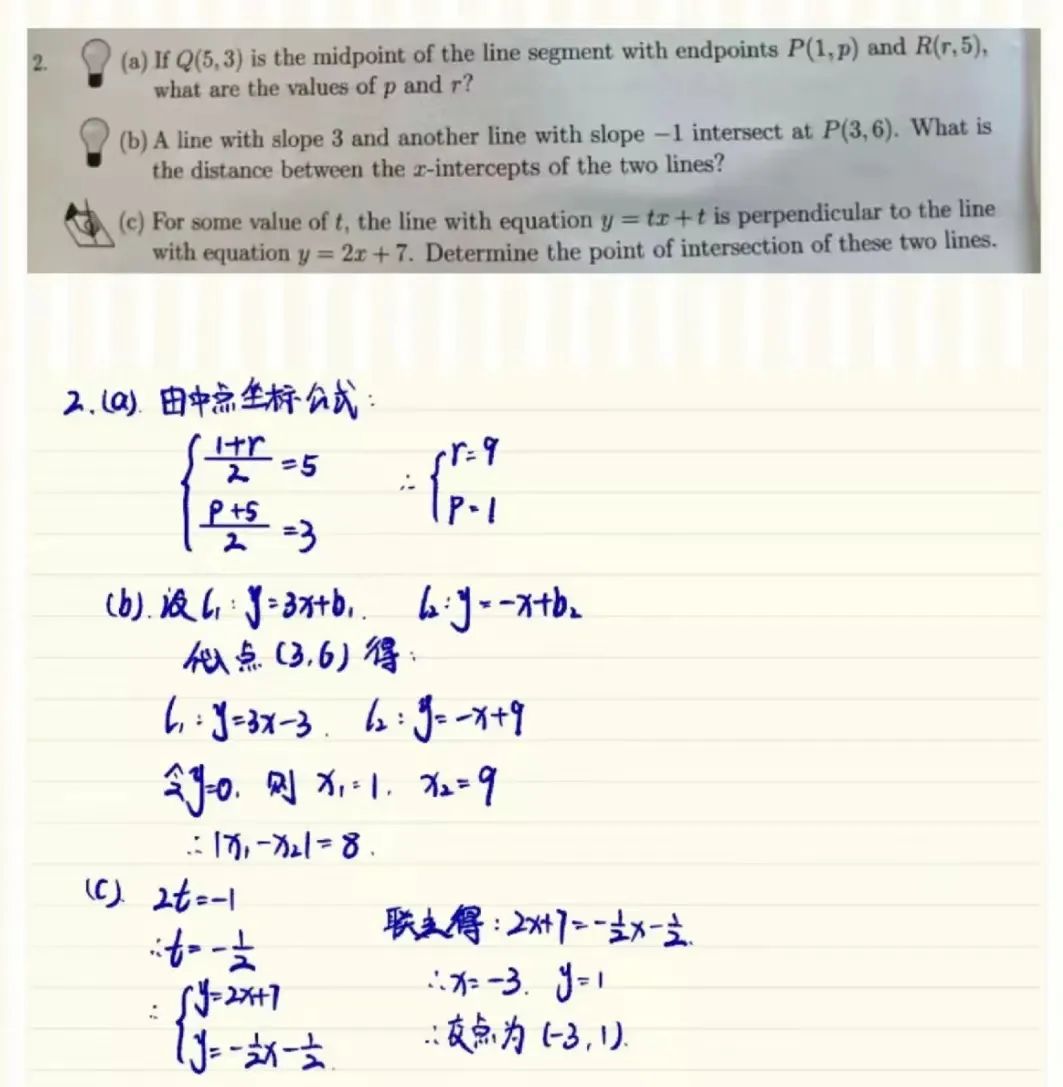 2. (a) If Q(5, 3) is the midpoint of the line segment with endpoints P(1, p) and R(r, 5),
what are the values of p and r?
(b) A line with slope 3 and another line with slope −1 intersect at P(3, 6). What is
the distance between the x-intercepts of the two lines?
(c) For some value of t, the line with equation y = tx + t is perpendicular to the line
with equation y = 2x + 7. Determine the point of intersection of these two lines.
2.(a). 由中点坐标公式:
{ (1+r)/2 = 5 ∴ { r=9
(p+5)/2 = 3 p=1
(b). 设 l₁: y=3x+b₁. l₂: y=-x+b₂
代入点 (3,6) 得:
l₁: y=3x-3. l₂: y=-x+9
令y=0. 则 x₁=1. x₂=9
∴ |x₁-x₂|=8.
(c). 2t=-1
∴ t=-1/2
∴ { y=2x+7
y=-1/2x-1/2.
联立得: 2x+7=-1/2x-1/2.
∴ x=-3. y=1
∴ 交点为 (-3,1).